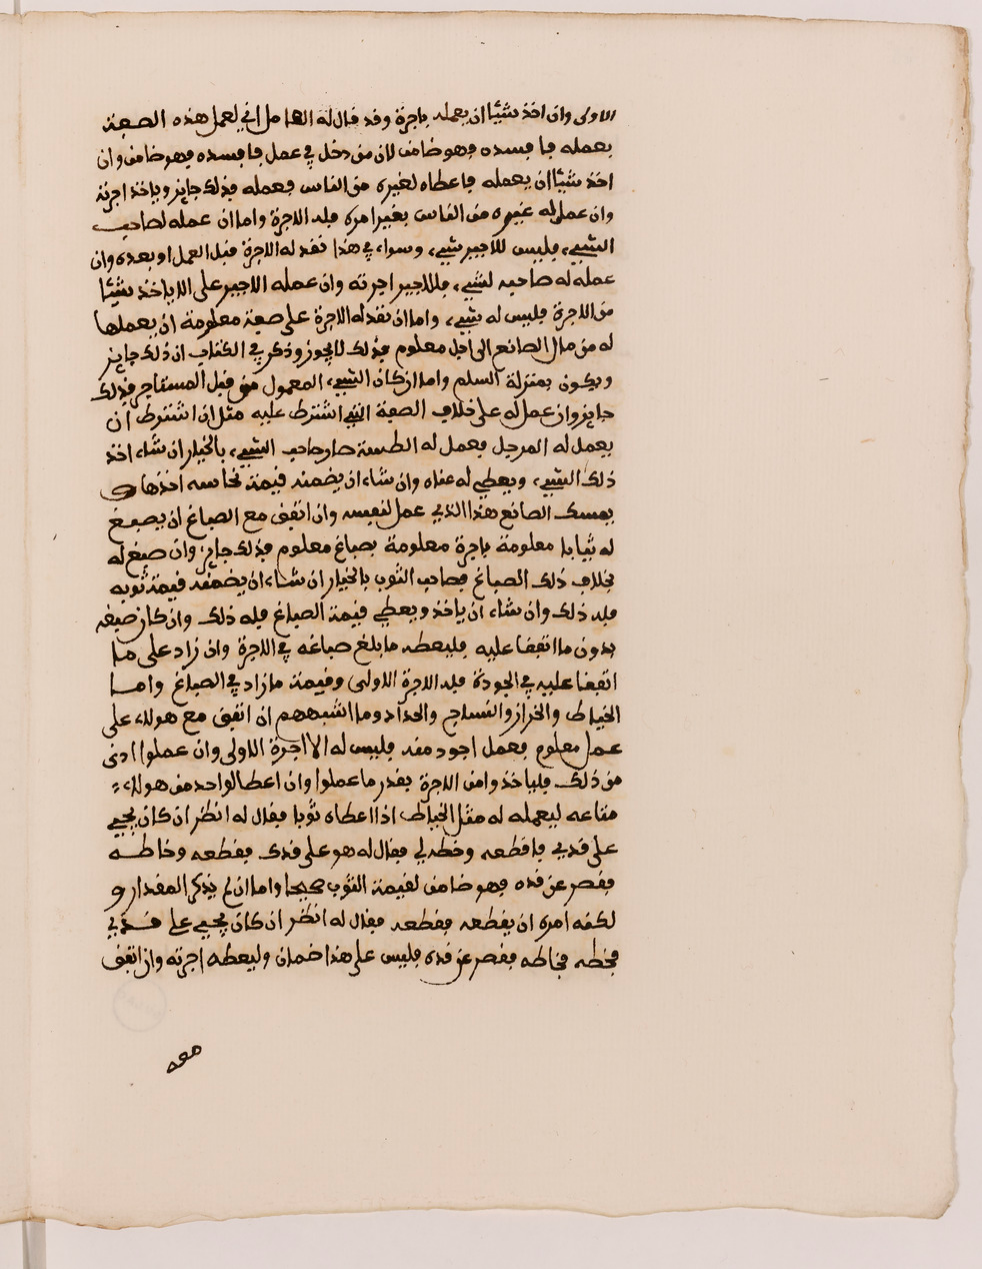 الاولى وان اخذ شيئا ان يعمله باجرة وقد قال له العامل اني لعمل هذه الصعبة
يعمله فافسده فهو ضامن لان من دخل في عمل فافسده فهو ضامن وان
اخذ شيئا ان يعمله فاعطاه لغيره من الناس فعمله فذلك جايز وياخذ اجرته
وان عمل له غيره من الناس بغير امره فله الاجرة واما ان عمله لصاحب
الشيء فليس للاجير شيء وسواء في هذا نقد له الاجرة قبل العمل او بعده وان
عمله له صاحبه لشيء فللاجير اجرته وان عمله الاجير على الا ياخذ شيئا
من الاجرة فليس له شيء واما ان نقد له الاجرة على صعة معلومة ان يعملها
له من مال الصانع الى اجل معلوم فذلك لا يجوز وذكر في الكتاب ان ذلك جايز
ويكون بمنزلة السلم واما ان كان الشيء المعمول من قبل المستاجر فذلك
جايز وان عمل له على خلاف الصعة التي اشترط عليه مثل ان اشترط ان
يعمل له المرجل فعمل له الطسة صار صاحب الشيء بالخيار ان شاء اخذ
ذلك الشيء ويعطي له عناه وان شاء ان يضمنه قيمة نحاسه اخذها و
يمسك الصانع هذا الذي عمل لنفسه وان اتفق مع الصباغ ان يصبغ
له ثيابا معلومة باجرة معلومة بصباغ معلوم فذلك جايز وان صبغ له
بخلاف ذلك الصباغ فصاحب الثوب بالخيار ان شاء ان يضمنه قيمة ثوبه
فله ذلك وان شاء ان ياخذ ويعطي قيمة الصباغ فله ذلك وان كان صبغه
بدون ما اتفقا عليه فليعطه ما بلغ صباغه في الاجرة وان زاد على ما
اتفقا عليه في الجودة فله الاجرة الاولى وقيمة ما زاد في الصباغ واما
الخياط والخراز والنساج والحداد وما اشبههم ان اتفق مع هولاء على
عمل معلوم فعمل اجود منه فليس له الا اجرة الاولى وان عملوا ادنى
من ذلك فلياخذوا من الاجرة بقدر ما عملوا وان اعطا لواحد من هولاء
متاعه ليعمله له مثل الخياط اذا اعطاه ثوبا فقال له انظر ان كان يجيء
على قدي فاقطعه وخطه لي فقال له هو على قدك فقطعه وخاطه
فقصر عن قده فهو ضامن لقيمة الثوب صحيحا واما ان لم يذكر المقدار و
لكنه امره ان يقطعه فقطعه فقال له انظر ان كان يجيء على قدي
فخطه فخاطه فقصر عن قده فليس على هذا ضمان وليعطه اجرته وان اتفق
معه